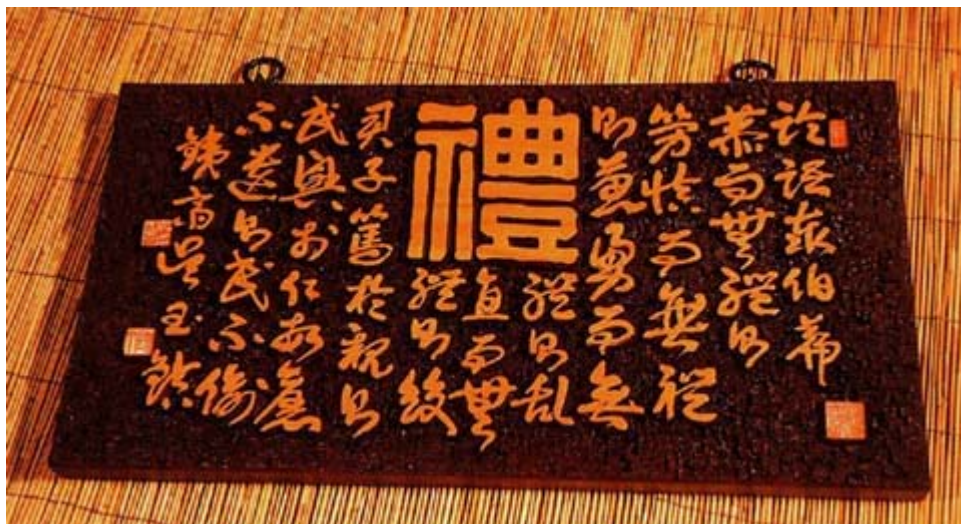 禮
論語泰伯篇
恭而無禮則
勞慎而無禮
則葸勇而無
禮則乱
直而無
禮則絞
君子篤於親則
民興於仁故舊
不遺則民不偷